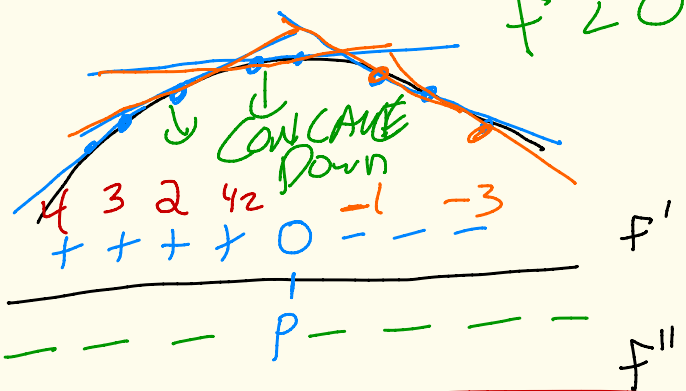 f' < 0
CONCAVE
DOWN
4 3 2 1/2 -1 -3
+ + + + 0 - - - f'
P
- - - - - - - f"